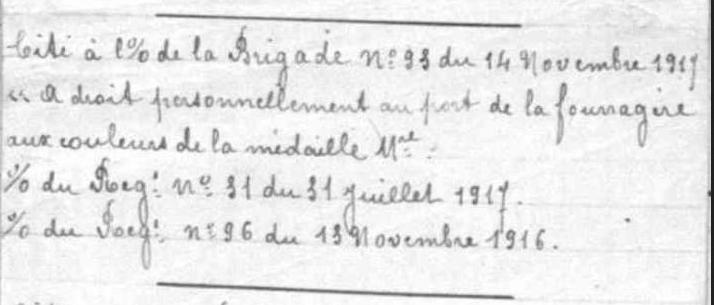 Cité à l'% de la Brigade N° 93 du 14 Novembre 1917
"A droit personnellement au port de la fourragère
aux couleurs de la médaille Mre.
% du Regt. N° 31 du 31 Juillet 1917.
% du Regt. n° 96 du 13 Novembre 1916.